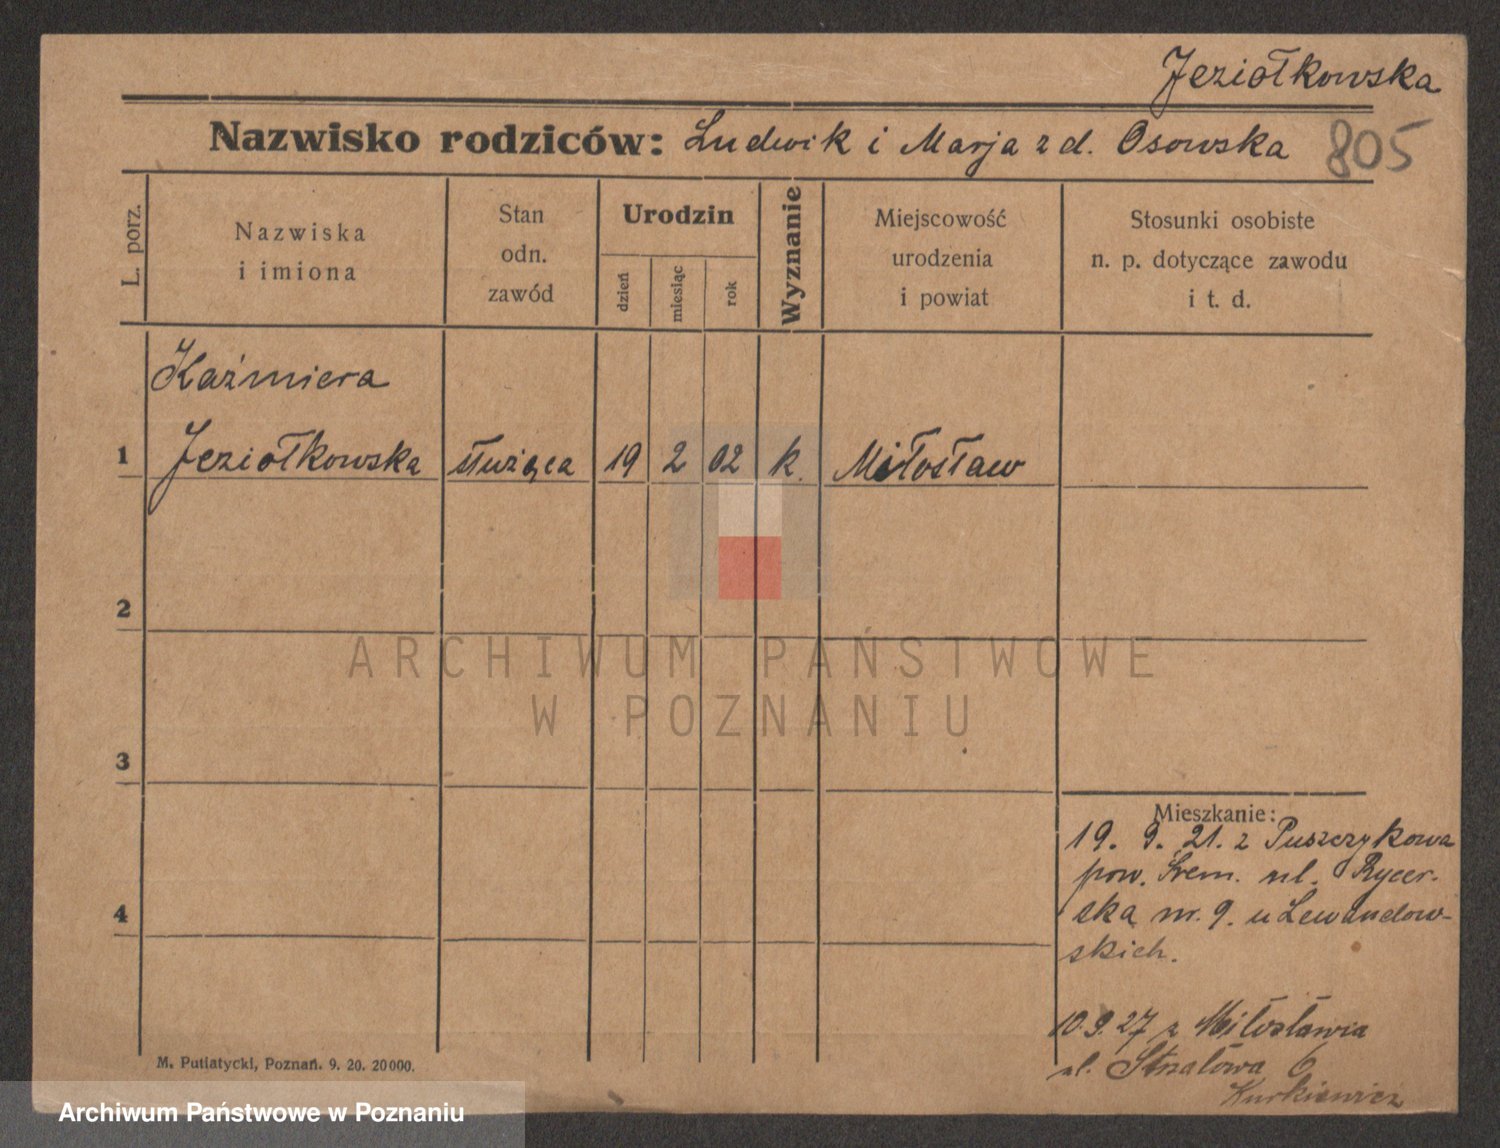 Jeziołkowska
Nazwisko rodziców: Ludwik i Marja z d. Osowska 805
L. porz.
Nazwiska
i imiona
Stan
odn.
zawód
Urodzin
dzień
miesiąc
rok
Wyznanie
Miejscowość
urodzenia
i powiat
Stosunki osobiste
n. p. dotyczące zawodu
i t. d.
Kaźmiera
1 Jeziołkowska służąca 19 2 02 k. Miłosław
2
ARCHIWUM PAŃSTWOWE
W POZNANIU
3
Mieszkanie:
19. 9. 21. z Puszczykowa
pow. Śrem. ul. Rycer-
ska nr. 9. u Lewandow-
skich.
4
10.9.27 z Miłosławia
ul. Strzałowa 6
Kurkiewicz
M. Putiatycki, Poznań. 9. 20. 20000.
Archiwum Państwowe w Poznaniu